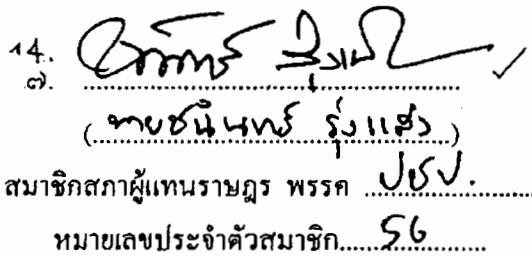 14.
๗.
(นายชนินทร์ รุ่งแสง)
สมาชิกสภาผู้แทนราษฎร พรรค ปชป.
หมายเลขประจำตัวสมาชิก 56